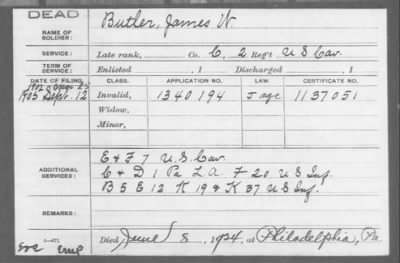 DEAD
NAME OF SOLDIER: Butler, James W.
SERVICE: Late rank, Co. C, 2 Reg't U S Cav.
TERM OF SERVICE: Enlisted , 1 Discharged , 1
DATE OF FILING. CLASS. APPLICATION NO. CERTIFICATE NO.
1902
1903 Sept. 12 Invalid, 1340194 J age 1137051
Widow,
Minor,
E & F 7 U.S. Cav.
ADDITIONAL SERVICES: C & D 1 Pa L.A. F 20 U S Inf.
B 5 E 12 K 19 & K 37 U S Inf.
REMARKS:
Died June 8, 1924, at Philadelphia, Pa